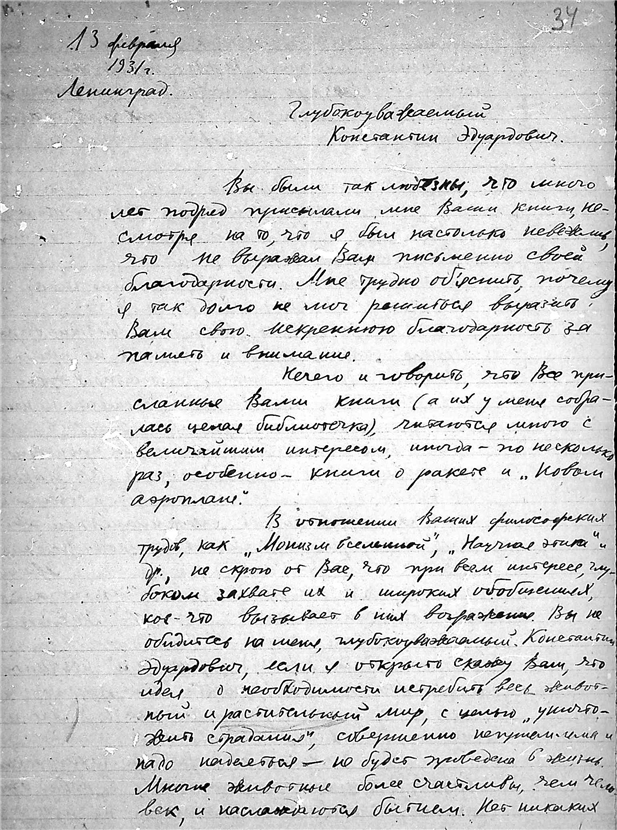 34
13 февраля
1931 г.
Ленинград.
Глубокоуважаемый
Константин Эдуардович.
Вы были так любезны, что много
лет подряд присылали мне Ваши книги, не-
смотря на то, что я был настолько невежлив,
что не выражал Вам письменно своей
благодарности. Мне трудно об'яснить, почему
я так долго не мог решиться выразить
Вам свою искреннюю благодарность за
память и внимание.
Нечего и говорить, что все при-
сланные Вами книги (а их у меня собра-
лась целая библиотечка), читаются мною с
величайшим интересом, иногда – по несколько
раз, особенно – книги о ракете и „Новом
аэроплане".
В отношении Ваших философских
трудов, как „Монизм вселенной", „Научная этика" и
др., не скрою от Вас, что при всем интересе, глу-
боком захвате их и широких обобщениях,
кое-что вызывает в них возражение. Вы не
обидитесь на меня, глубокоуважаемый Константин
Эдуардович, если я открыто скажу Вам, что
идея о необходимости истребить весь живот-
ный и растительный мир, с целью „уничто-
жить страдания", совершенно неприемлема и
надо надеяться – не будет проведена в жизнь.
Многие животные более счастливы, чем чело-
век, и наслаждаются бытием. Нет никаких